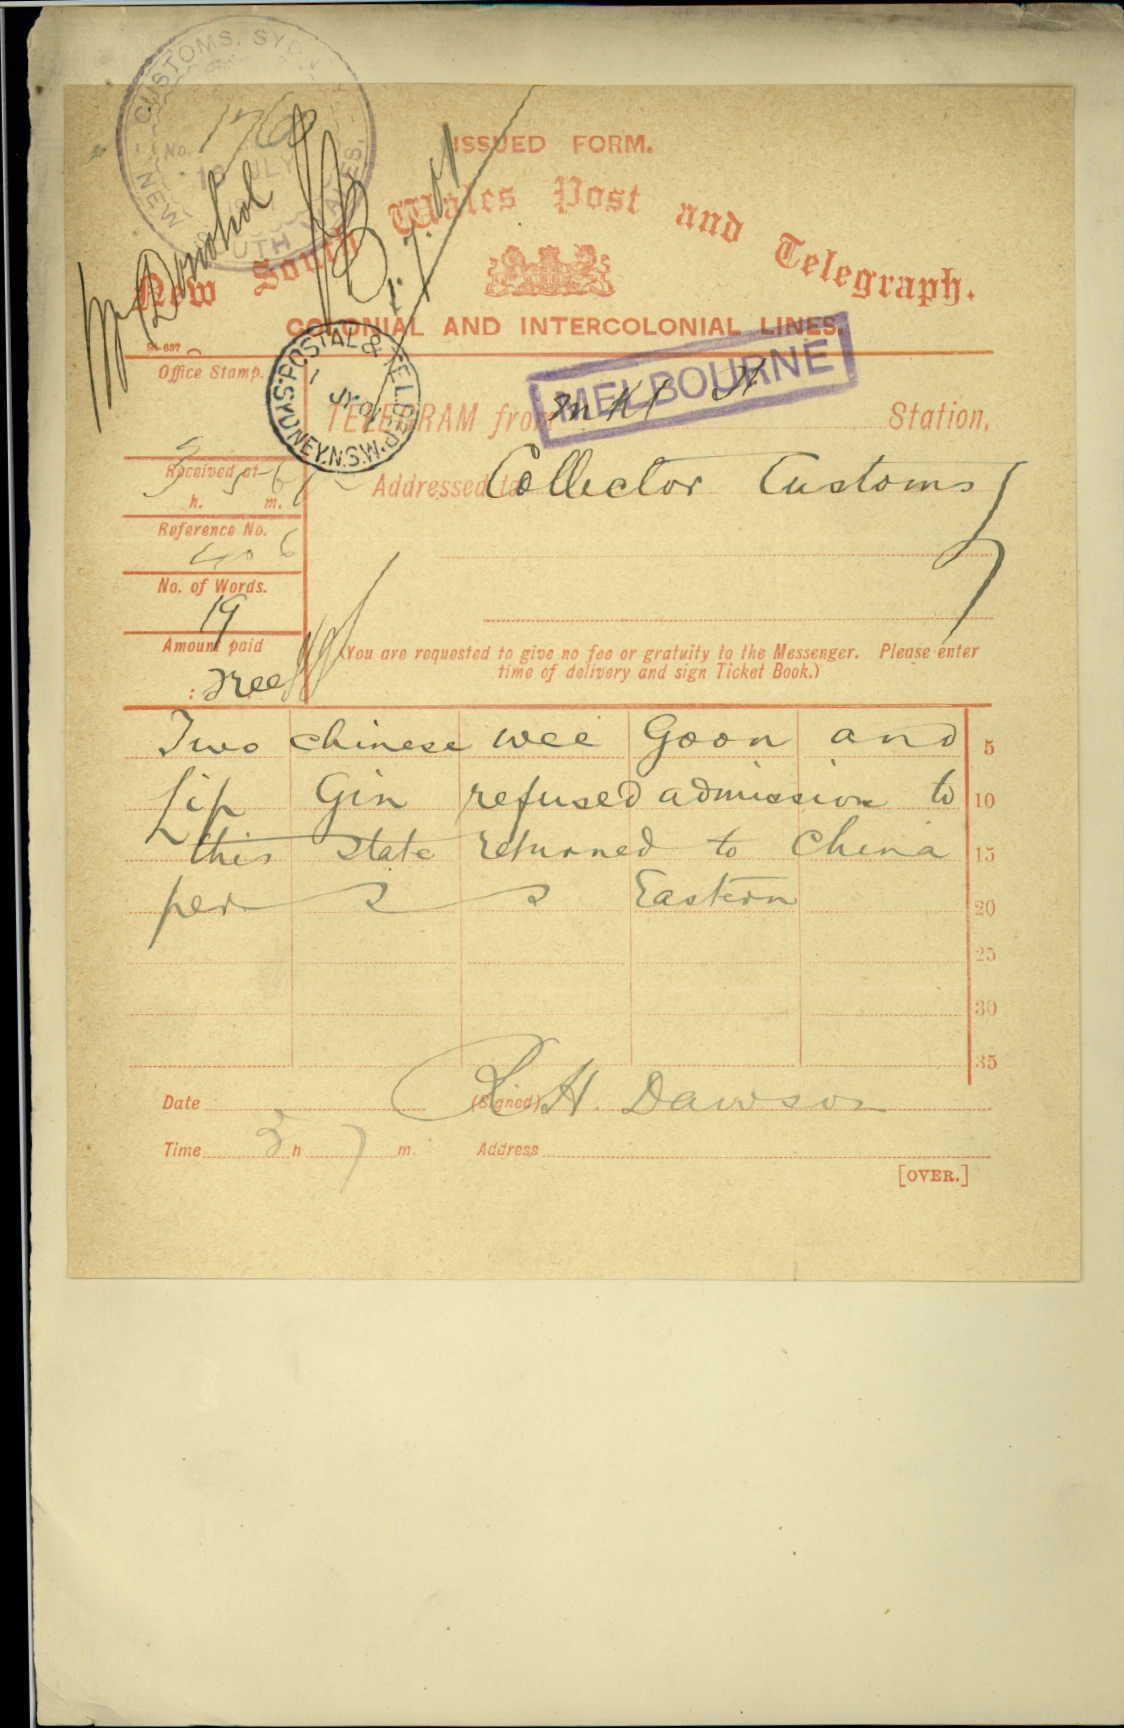 CUSTOMS. SYDNEY
No. 1760
JULY
NEW SOUTH WALES.
Mr Donohoe
1.7.01
ISSUED FORM.
New South Wales Post and Telegraph.
COLONIAL AND INTERCOLONIAL LINES.
Office Stamp.
SYDNEY.N.S.W. POSTAL & TEL. DEP.
1 JY 01
MELBOURNE
TELEGRAM from Mkt St Station,
Received at
h. m.
Addressed to Collector Customs
Reference No.
406
No. of Words.
19
Amount paid
: Free
(You are requested to give no fee or gratuity to the Messenger. Please enter
time of delivery and sign Ticket Book.)
Two chinese wee Goon and 5
Lip Gin refused admission to 10
this state returned to China 15
per S S Eastern 20
25
30
35
Date (Signed) H. Dawson
Time 3 h 7 m. Address
[OVER.]